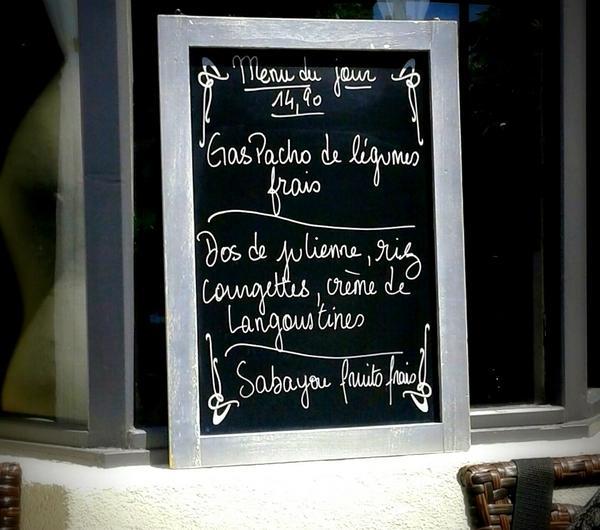 Menu du jour
14,90
GasPacho de légumes
frais
Dos de julienne, riz
courgettes, crème de
Langoustines
Sabayon fruits frais